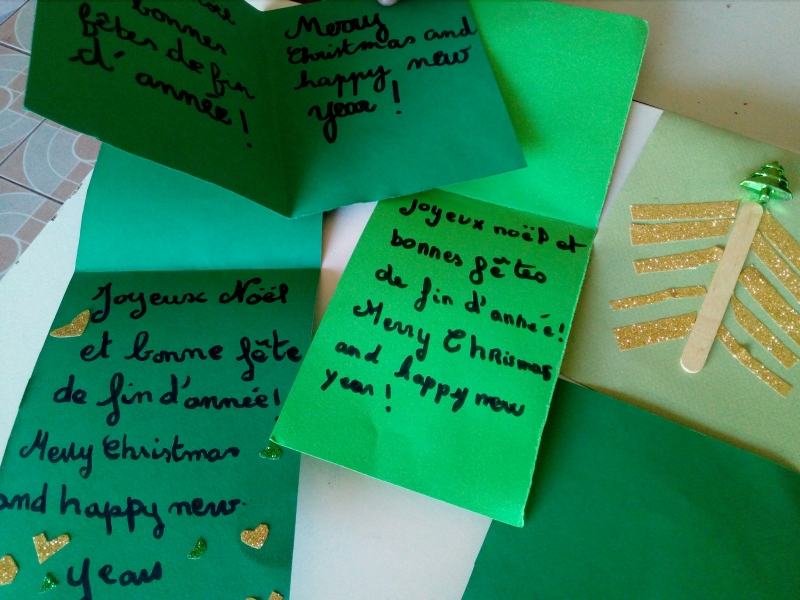 bonnes
fêtes de fin
d'année!
Merry
Christmas and
happy new
year!
Joyeux Noël
et bonne fête
de fin d'année!
Merry Christmas
and happy new
Year
Joyeux noël et
bonnes fêtes
de fin d'année!
Merry Chrismas
and happy new
year!